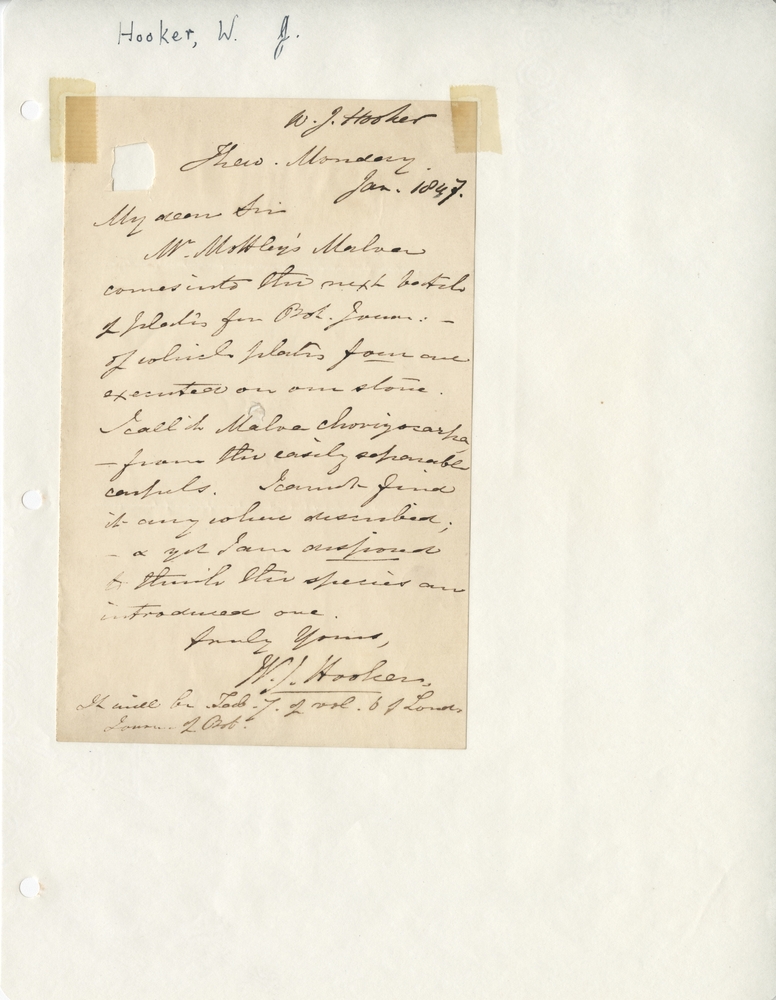 Hooker, W. J.
W. J. Hooker
Monday
Jan. 1847.
My dear Sir
Mr. Mottley's Malva
comes into the next batch
of plates for Bot. Journ: -
of which plates four are
executed on one stone.
I call it Malva chorizocarpa
- from the easily separable
carpels. I cannot find
it any where described;
- & yet I am disposed
to think the species an
introduced one.
truly Yours,
W. J. Hooker.
It will be Tab. 7. of vol. 6 of Lond.
Journ. of Bot.